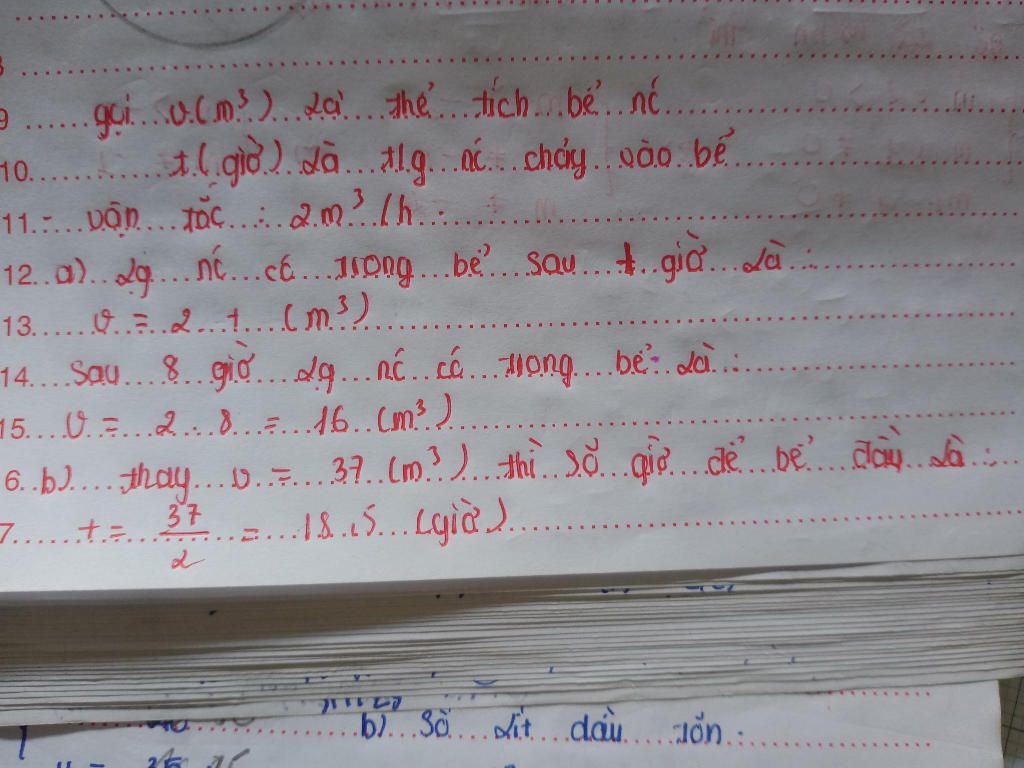 9 gọi v(m³) là thể tích bể nć
10. t (giờ) là t.g nć chảy vào bể
11 - vận tốc : 2m³/h .
12. a) lg nć có trong bể sau t giờ là :
13. v = 2 t (m³)
14. Sau 8 giờ lg nć có trong bể là :
15. v = 2 . 8 = 16 (m³)
6. b) thay v = 37 (m³) thì số giờ để bể đầy là :
7 t = 37/2 = 18,5 (giờ)
b) Số lít dầu